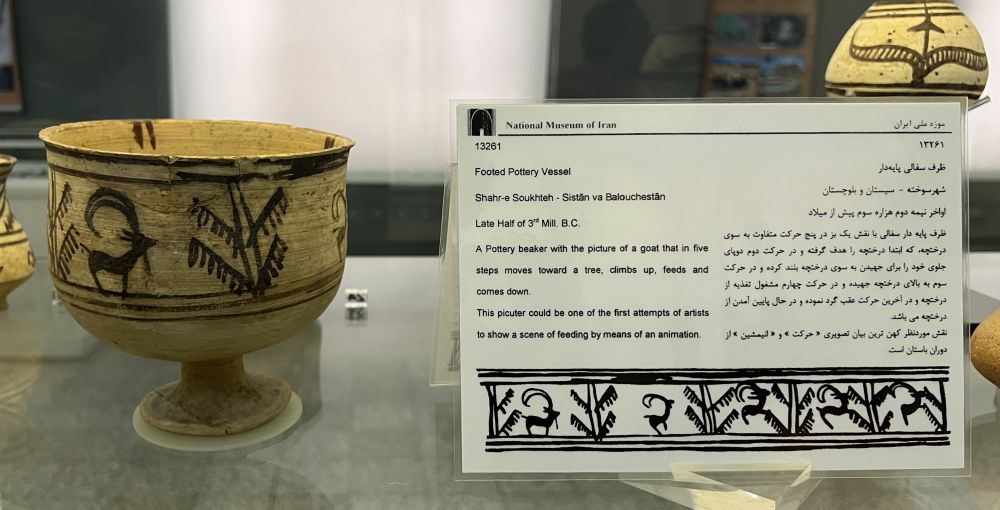 National Museum of Iran
موزه ملی ایران
13261
Footed Pottery Vessel
Shahr-e Soukhteh - Sistān va Balouchestān
Late Half of 3rd Mill. B.C.
A Pottery beaker with the picture of a goat that in five
steps moves toward a tree, climbs up, feeds and
comes down.
This picuter could be one of the first attempts of artists
to show a scene of feeding by means of an animation.
۱۳۲۶۱
ظرف سفالی پایه‌دار
شهرسوخته - سیستان و بلوچستان
اواخر نیمه دوم هزاره سوم پیش از میلاد
ظرف پایه دار سفالی با نقش یک بز در پنج حرکت متفاوت به سوی
درختچه، که ابتدا درختچه را هدف گرفته و در حرکت دوم دوپای
جلوی خود را برای جهیدن به سوی درختچه بلند کرده و در حرکت
سوم به بالای درختچه جهیده و در حرکت چهارم مشغول تغذیه از
درختچه و در آخرین حرکت عقب گرد نموده و در حال پایین آمدن از
درختچه می باشد.
نقش موردنظر کهن ترین بیان تصویری « حرکت » و « انیمشین » از
دوران باستان است.